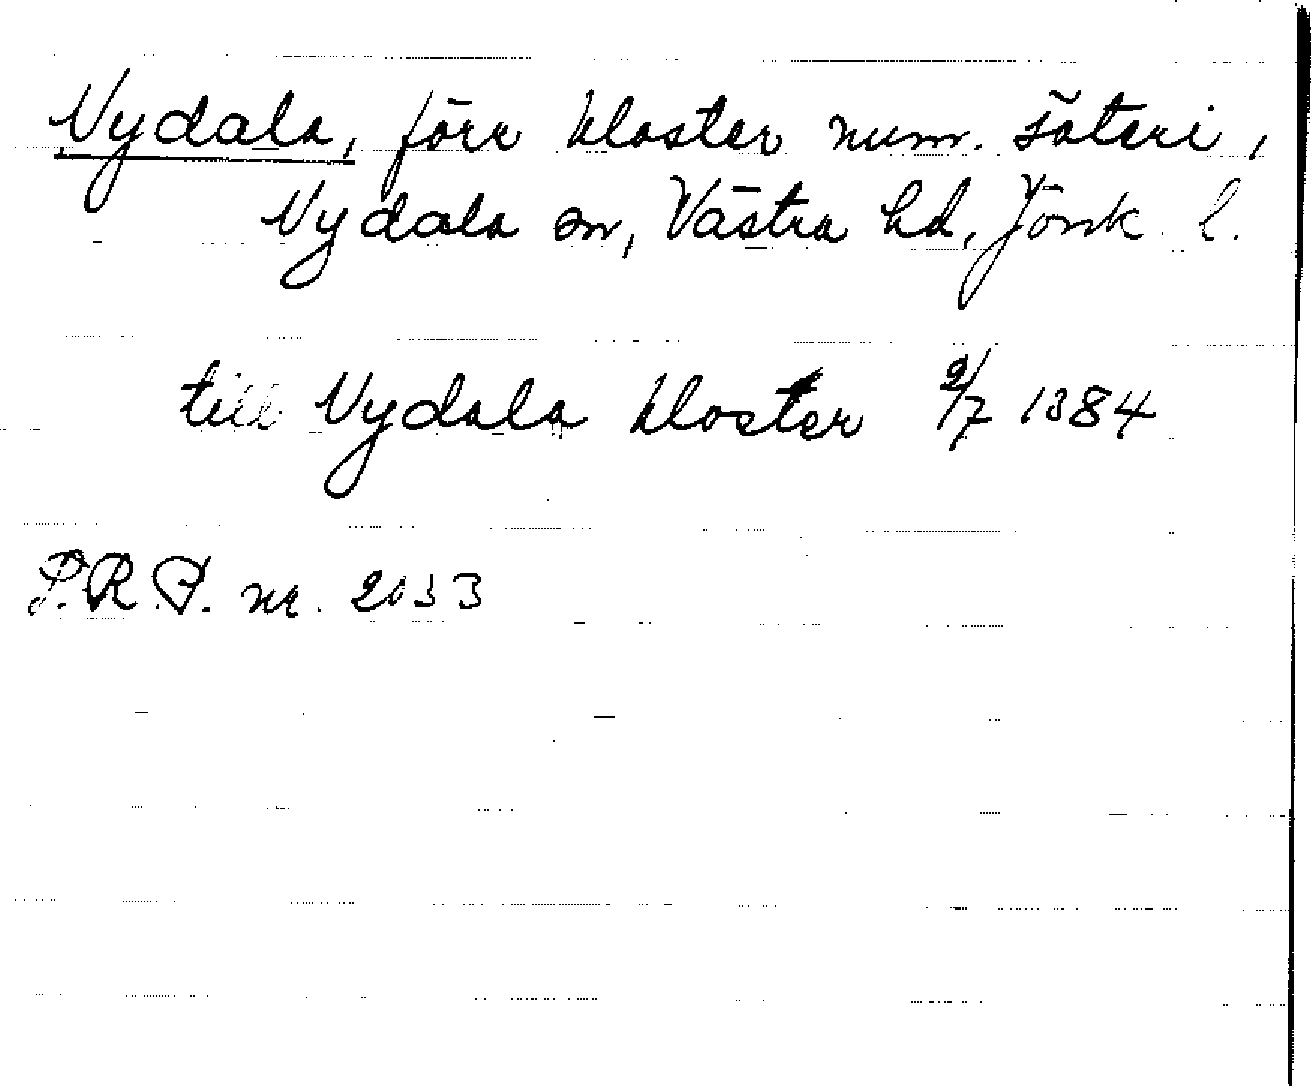 Nydala, förr kloster num. säteri,
Nydala sn, Västra hd, Jönk. l.
till Nydala kloster 9/7 1384
P.R.P. nr. 2033